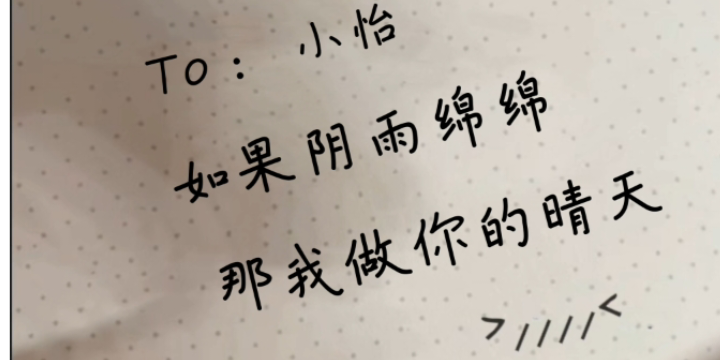 To: 小怡
如果阴雨绵绵
那我做你的晴天
>////<